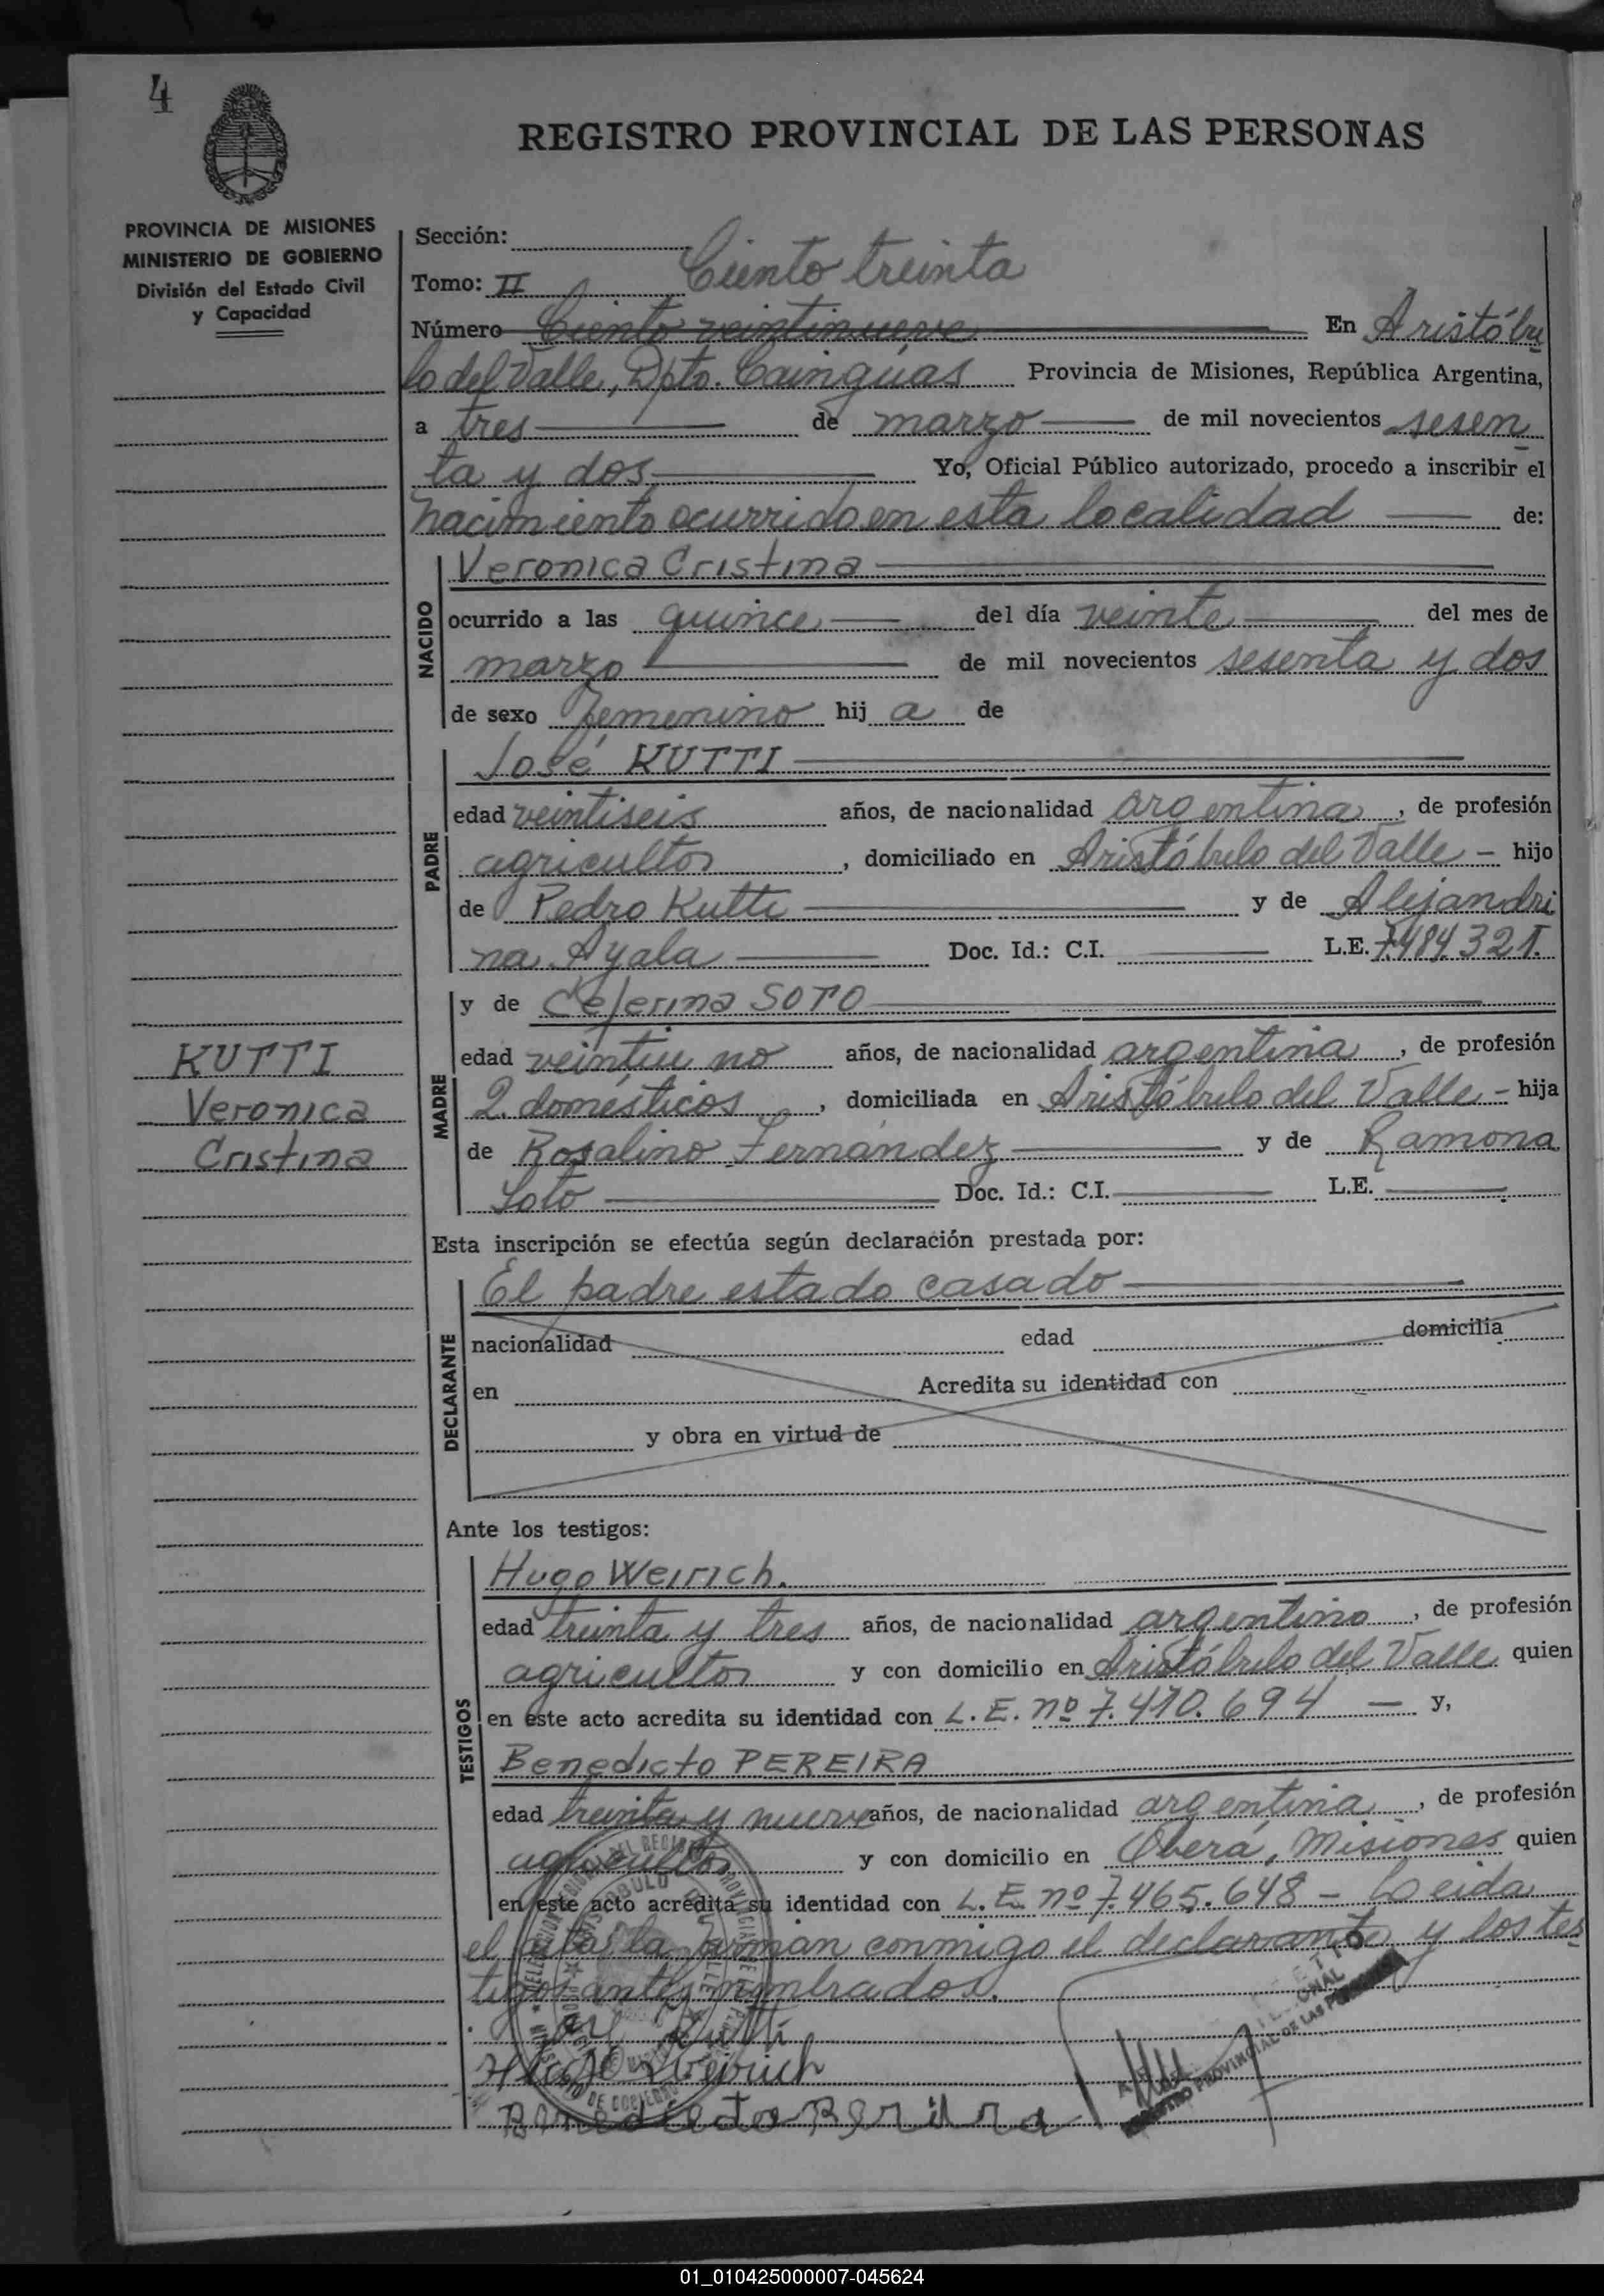 4
REGISTRO PROVINCIAL DE LAS PERSONAS
PROVINCIA DE MISIONES
MINISTERIO DE GOBIERNO
División del Estado Civil
y Capacidad
Sección:
Ciento treinta
Tomo: II
Número Ciento veintinueve En Aristóbu
lo del Valle, Dpto. Cainguás Provincia de Misiones, República Argentina,
a tres de marzo de mil novecientos sesen
ta y dos Yo, Oficial Público autorizado, procedo a inscribir el
nacimiento ocurrido en esta localidad de:
NACIDO
Veronica Cristina
ocurrido a las quince del día veinte del mes de
marzo de mil novecientos sesenta y dos
de sexo femenino hij a de
PADRE
José KUTTI
edad veintiseis años, de nacionalidad argentina, de profesión
agricultor, domiciliado en Aristóbulo del Valle - hijo
de Pedro Kutti y de Alejandri
na Ayala Doc. Id.: C.I. L.E. 7.484.321.
MADRE
y de Ceferina SOTO
edad veintiu no años, de nacionalidad argentina, de profesión
Q. domésticos, domiciliada en Aristóbulo del Valle - hija
de Rosalino Fernández y de Ramona
Soto Doc. Id.: C.I. L.E.
KUTTI
Veronica
Cristina
Esta inscripción se efectúa según declaración prestada por:
DECLARANTE
El padre estado casado
nacionalidad edad domicilia
en Acredita su identidad con
y obra en virtud de
Ante los testigos:
TESTIGOS
Hugo Weirich.
edad treinta y tres años, de nacionalidad argentino, de profesión
agricultor y con domicilio en Aristóbulo del Valle quien
en este acto acredita su identidad con L.E. nº 7.410.694 — y,
Benedicto PEREIRA
edad treinta y nueve años, de nacionalidad argentina, de profesión
agricultor y con domicilio en Oberá, Misiones quien
en este acto acredita su identidad con L.E. nº 7.465.648 - Leida
el acta la firman conmigo el declarante y los tes
tigos antes nombrados.
Kutti
Hugo Weirich
Benedicto Pereira
REGISTRO PROVINCIAL DE LAS PERSONAS
01_010425000007-045624